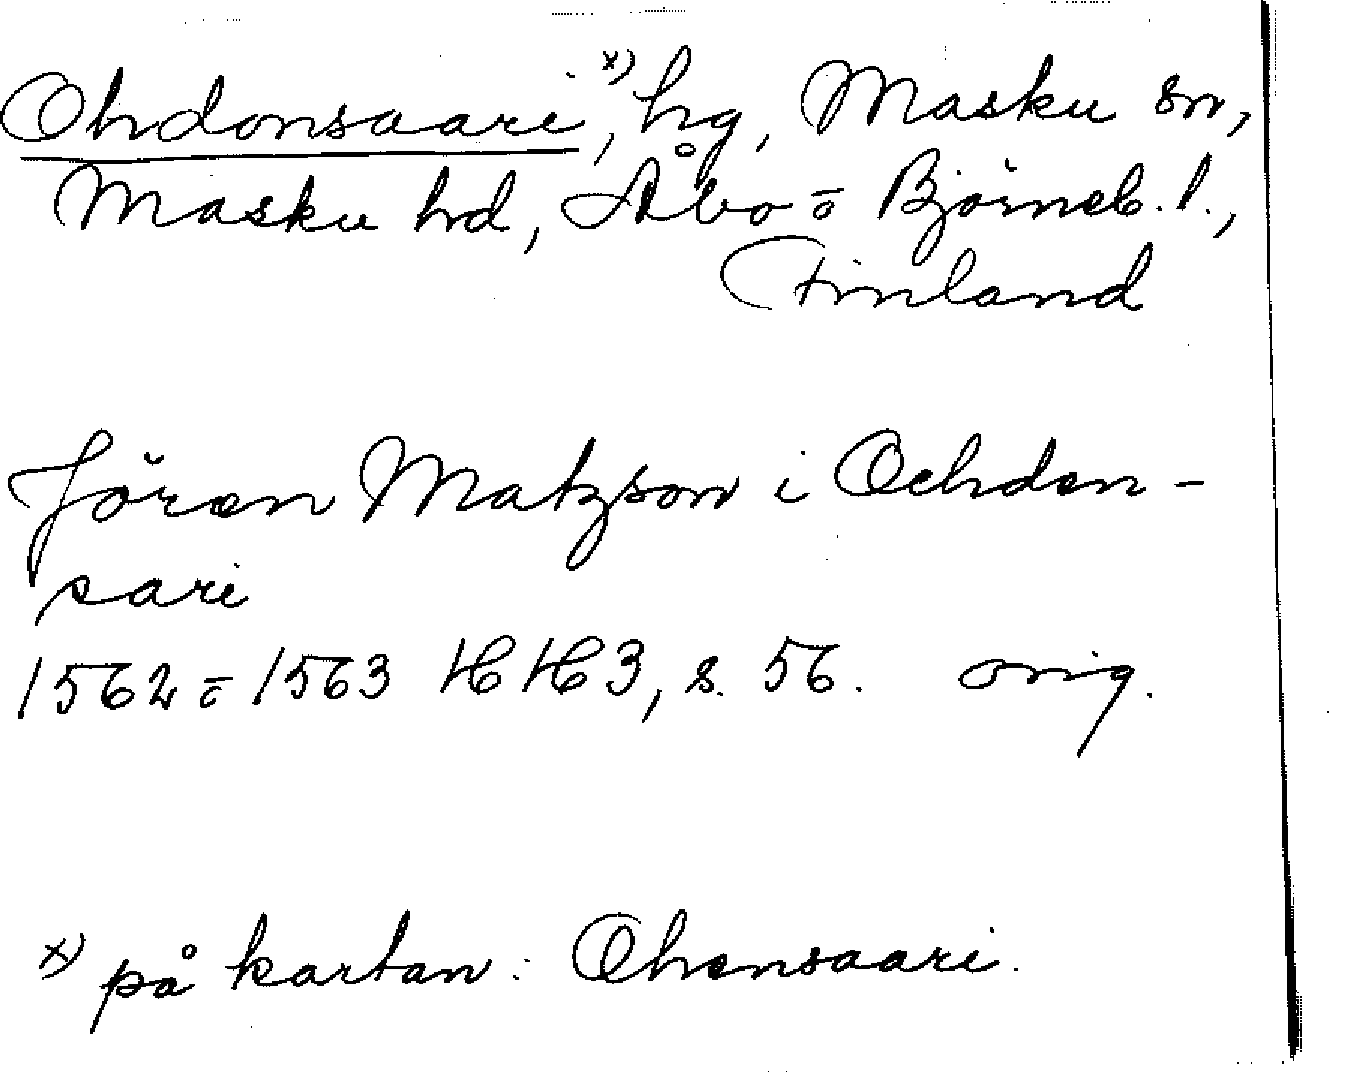 Ohdonsaari x), hg, Masku sn,
Masku hd, Åbo o Björneb. l.,
Finland
Jören Matzson i Ochden-
sari
1562 o 1563 HH3, s. 56. orig.
x) på kartan: Ohensaari.